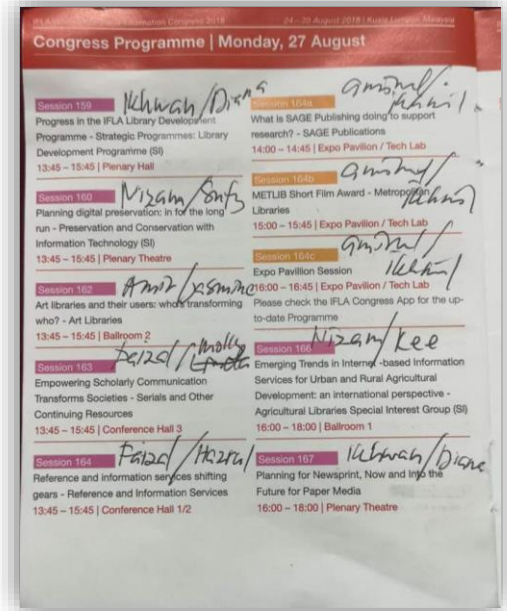 IFLA World Library and Information Congress 2018
24 – 30 August 2018 | Kuala Lumpur, Malaysia
Congress Programme | Monday, 27 August
Session 159
Ikhwan/Diana
Progress in the IFLA Library Development
Programme - Strategic Programmes: Library
Development Programme (SI)
13:45 – 15:45 | Plenary Hall
Session 160
Nizam/
Planning digital preservation: in for the long
run - Preservation and Conservation with
Information Technology (SI)
13:45 – 15:45 | Plenary Theatre
Session 162
Amir/Yasmine
Art libraries and their users: who's transforming
who? - Art Libraries
13:45 – 15:45 | Ballroom 2
Session 163
Faizal/Molly
Empowering Scholarly Communication
Transforms Societies - Serials and Other
Continuing Resources
13:45 – 15:45 | Conference Hall 3
Session 164
Faizal/Hazrul
Reference and information services shifting
gears - Reference and Information Services
13:45 – 15:45 | Conference Hall 1/2
Session 164a
What is SAGE Publishing doing to support
research? - SAGE Publications
14:00 – 14:45 | Expo Pavilion / Tech Lab
Session 164b
METLIB Short Film Award - Metropolitan
Libraries
15:00 – 15:45 | Expo Pavilion / Tech Lab
Session 164c
Expo Pavillion Session
16:00 – 16:45 | Expo Pavilion / Tech Lab
Please check the IFLA Congress App for the up-
to-date Programme
Session 166
Nizam/Kee
Emerging Trends in Internet -based Information
Services for Urban and Rural Agricultural
Development: an international perspective -
Agricultural Libraries Special Interest Group (SI)
16:00 – 18:00 | Ballroom 1
Session 167
Ikhwan/Diana
Planning for Newsprint, Now and Into the
Future for Paper Media
16:00 – 18:00 | Plenary Theatre